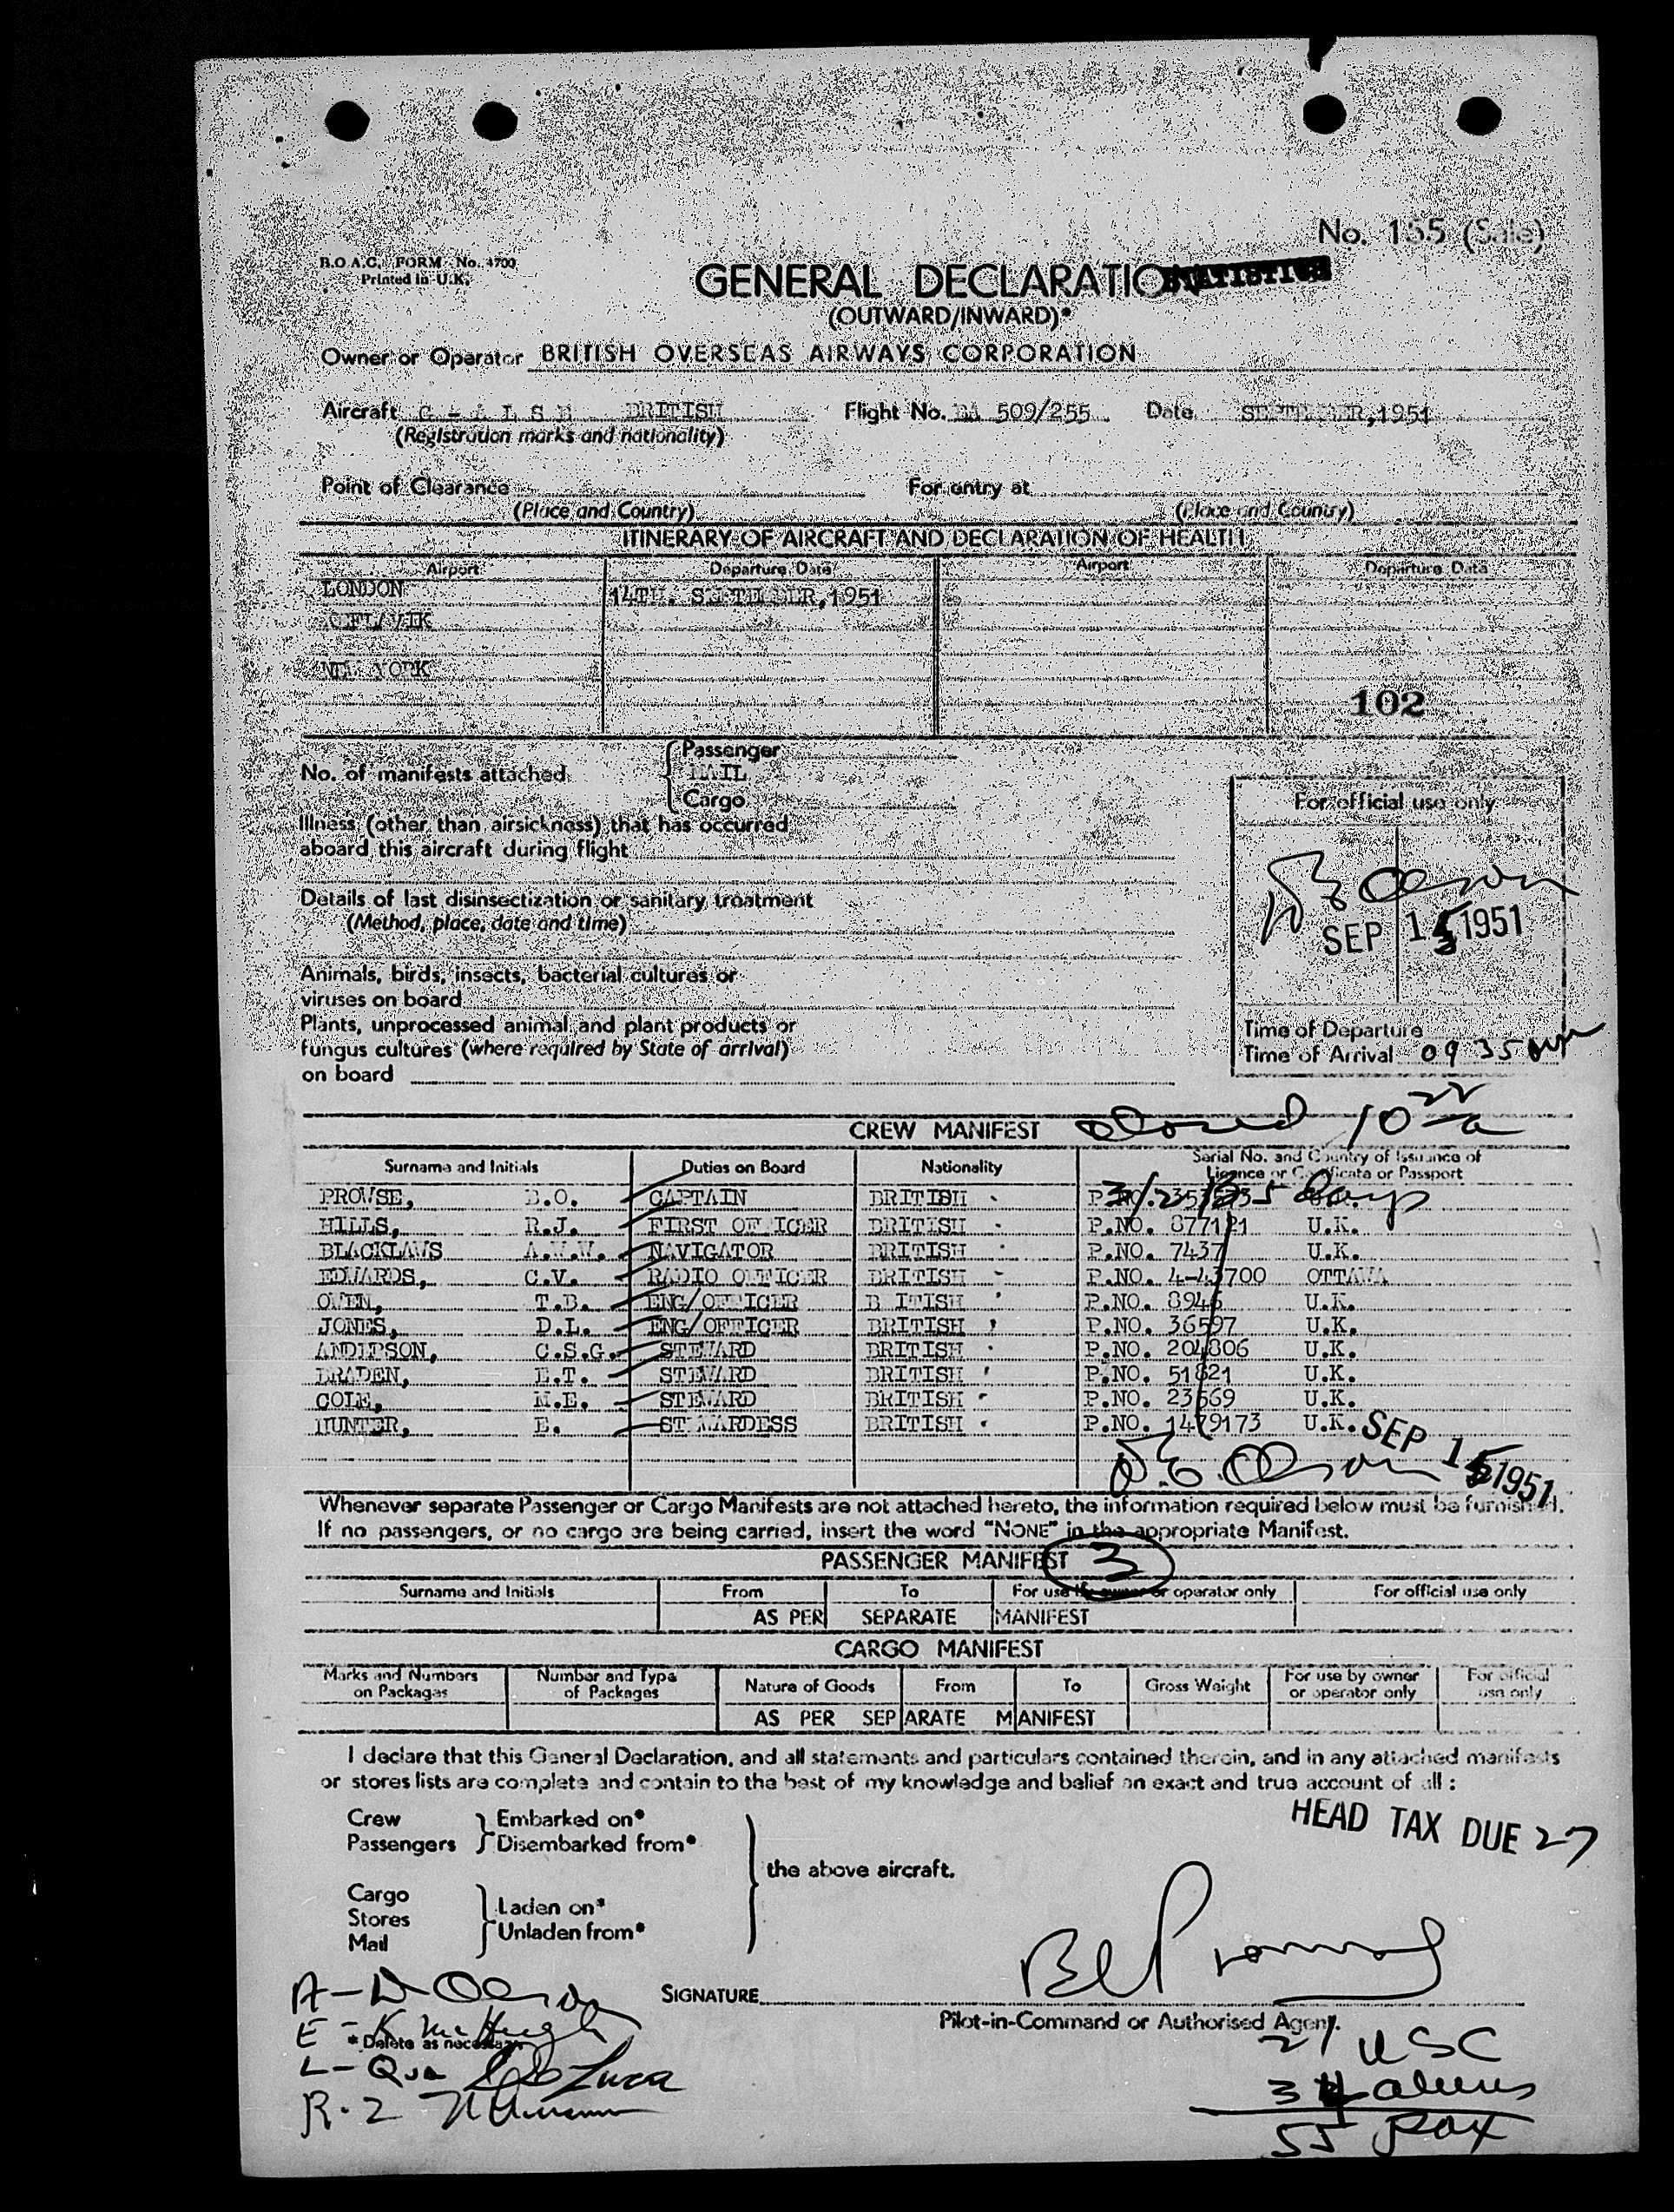 No. 155 (Sale)
B.O.A.C. FORM No. 4700
Printed in U.K.
GENERAL DECLARATION STATISTICS
(OUTWARD/INWARD)*
Owner or Operator BRITISH OVERSEAS AIRWAYS CORPORATION
Aircraft BRITISH Flight No. BA 509/255 Date SEPTEMBER, 1951
(Registration marks and nationality)
Point of Clearance For entry at
(Place and Country) (Place and Country)
ITINERARY OF AIRCRAFT AND DECLARATION OF HEALTH
Airport Departure Date Airport Departure Date
LONDON 14TH. SEPTEMBER, 1951
NEW YORK
102
No. of manifests attached
Passenger
MAIL
Cargo
For official use only
Illness (other than airsickness) that has occurred
aboard this aircraft during flight
Details of last disinsectization or sanitary treatment
(Method, place, date and time)
SEP 15 1951
Animals, birds, insects, bacterial cultures or
viruses on board
Plants, unprocessed animal and plant products or
fungus cultures (where required by State of arrival)
on board
Time of Departure
Time of Arrival 09 35 am
CREW MANIFEST Closed 10 22 a
Surname and Initials Duties on Board Nationality Serial No. and Country of Issuance of
Licence or Certificate or Passport
PROWSE, B.O. CAPTAIN BRITISH
HILLS, R.J. FIRST OFFICER BRITISH P.NO. 877121 U.K.
BLACKLAWS NAVIGATOR BRITISH P.NO. 7437 U.K.
EDWARDS, C.V. RADIO OFFICER BRITISH P.NO. 4-43700 OTTAWA
OWEN, T.B. ENG/OFFICER B ITISH P.NO. 8946 U.K.
JONES, D.L. ENG/OFFICER BRITISH P.NO. 36597 U.K.
ANDERSON, C.S.G. STEWARD BRITISH P.NO. 204806 U.K.
BRADEN, E.T. STEWARD BRITISH P.NO. 51821 U.K.
COLE, M.E. STEWARD BRITISH P.NO. 23669 U.K.
HUNTER, E. STEWARDESS BRITISH P.NO. 1479173 U.K.
SEP 15 1951
Whenever separate Passenger or Cargo Manifests are not attached hereto, the information required below must be furnished.
If no passengers, or no cargo are being carried, insert the word "NONE" in the appropriate Manifest.
PASSENGER MANIFEST 3
Surname and Initials From To For use by owner or operator only For official use only
AS PER SEPARATE MANIFEST
CARGO MANIFEST
Marks and Numbers on Packages Number and Type of Packages Nature of Goods From To Gross Weight For use by owner or operator only For official use only
AS PER SEPARATE MANIFEST
I declare that this General Declaration, and all statements and particulars contained therein, and in any attached manifests
or stores lists are complete and contain to the best of my knowledge and belief an exact and true account of all :
HEAD TAX DUE 27
Crew Embarked on*
Passengers Disembarked from*
the above aircraft.
Cargo
Stores
Mail
Laden on*
Unladen from*
SIGNATURE
Pilot-in-Command or Authorised Agent.
E - K McHugh
* Delete as necessary
21 USC
34 aliens
55 pax